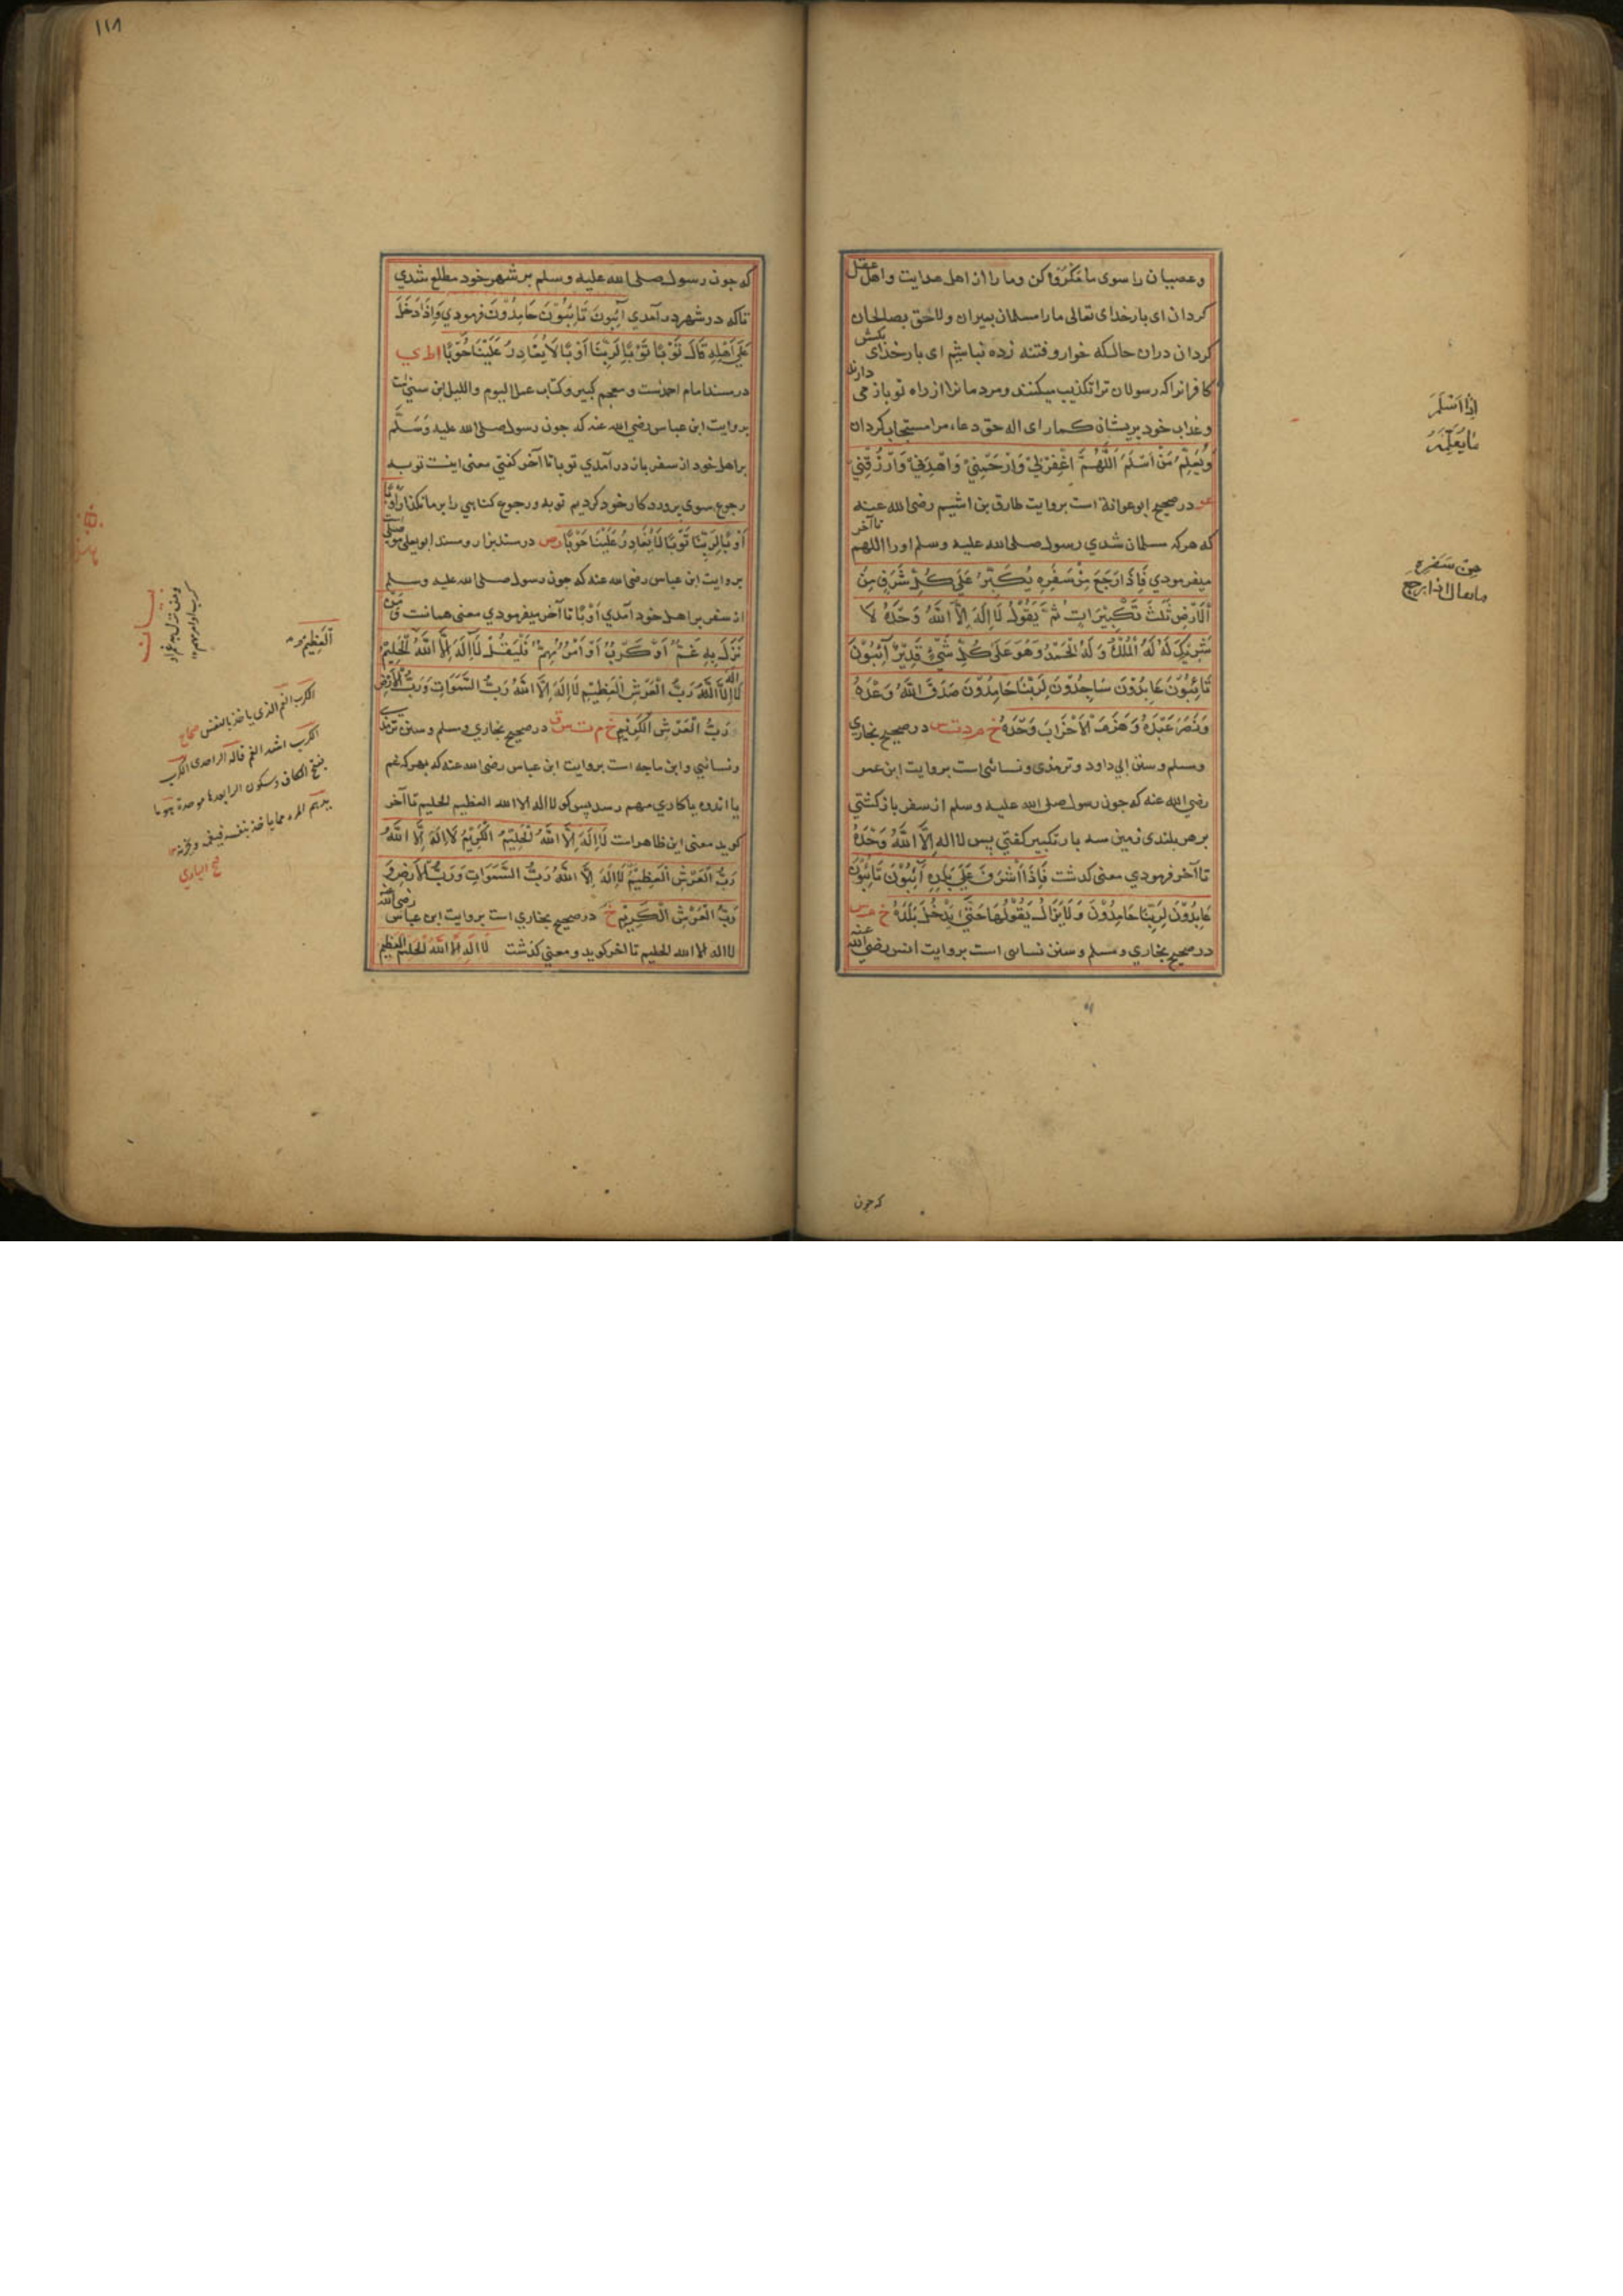 وعصیان را سوی ما مکروه کن وما را از اهل هدایت واهل عقل
کردان ای بارخدای تعالی ما را مسلمان بمیران ولاحق بصالحان
کردان دران حالیکه خوار وفتنه زده نباشیم ای بارخدای بکش
کافرانرا که رسولان ترا تکذیب میکنند ومردمانرا از راه تو باز می دارند
وعذاب خود بریشان کمار ای اله حق دعاء مرا مستجاب کردان
وَيُعَلِّمُ مَنْ اَسْلَمَ اَللّٰهُمَّ اغْفِرْ لِيْ وَارْحَمْنِيْ وَاهْدِنِيْ وَارْزُقْنِيْ
عو در صحیح ابو عوانة است بروایت طارق بن اشیم رضی الله عنه
که هرکه مسلمان شدي رسول صلی الله علیه وسلم اورا اللهم تا آخر
میفرمودي فَاِذَا رَجَعَ مِنْ سَفَرِهٖ يُكَبِّرُ عَلٰى كُلِّ شَرَفٍ مِنَ
الْاَرْضِ ثَلٰثَ تَكْبِيْرَاتٍ ثُمَّ يَقُوْلُ لَا اِلٰهَ اِلَّا اللّٰهُ وَحْدَهُ لَا
شَرِيْكَ لَهُ لَهُ الْمُلْكُ وَلَهُ الْحَمْدُ وَهُوَ عَلٰى كُلِّ شَيْءٍ قَدِيْرٌ آئِبُوْنَ
تَائِبُوْنَ عَابِدُوْنَ سَاجِدُوْنَ لِرَبِّنَا حَامِدُوْنَ صَدَقَ اللّٰهُ وَعْدَهُ
وَنَصَرَ عَبْدَهُ وَهَزَمَ الْاَحْزَابَ وَحْدَهُ خ م د ت س در صحیح بخاري
ومسلم وسنن ابی داود وترمذی ونسائی است بروایت ابن عمر
رضی الله عنه که جون رسول صلی الله علیه وسلم از سفر بازکشتي
بر هر بلندی زمین سه بار تکبیر کفتي پس لا اله اِلَّا اللّٰهُ وَحْدَهُ
تا آخر فرمودي معنی کذشت فَاِذَا اَشْرَفَ عَلٰى بَلَدِهٖ آئِبُوْنَ تَائِبُوْنَ
عَابِدُوْنَ لِرَبِّنَا حَامِدُوْنَ وَلَا يَزَالُ يَقُوْلُهَا حَتّٰى يَدْخُلَ بَلَدَهُ خ م س
در صحیح بخاري ومسلم وسنن نسائی است بروایت انس رضي الله عنه
اِذَا اَسْلَمَ
مَا يُعَلِّمُ
مِنْ سَفَرِهٖ
که جون
١١٨
که جون رسول صلی الله علیه وسلم بر شهر خود مطلع شدي
تا که در شهر درآمدي آئِبُوْنَ تَائِبُوْنَ حَامِدُوْنَ فرمودي وَاِذَا دَخَلَ
عَلٰى اَهْلِهٖ قَالَ تَوْبًا تَوْبًا لِرَبِّنَا اَوْبًا لَا يُغَادِرُ عَلَيْنَا حَوْبًا ا ط ي
در مسند امام احمدست ومعجم کبیر وکتاب عمل الیوم واللیل ابن سني است
بروایت ابن عباس رضي الله عنه که جون رسول صلی الله علیه وَسَلَّم
بر اهل خود از سفر باز درآمدي توبا تا آخر کفتي معنی اینست توبه
رجوع سوی بروردکار خود کردیم توبه ورجوع کناهی را بر ما نکذارد
اَوْبًا اَوْبًا لِرَبِّنَا تَوْبًا لَا يُغَادِرُ عَلَيْنَا حَوْبًا ر ص در مسند بزار ومسند ابو یعلی موصلی
بروایت ابن عباس رضی الله عنه که جون رسول صلی الله علیه وسلم
از سفر بر اهل خود آمدي اَوْبًا تا آخر میفرمودي معنی همانست وَمَنْ
نَزَلَ بِهٖ غَمٌّ اَوْ كَرْبٌ اَوْ اَمْرٌ مُهِمٌّ فَلْيَقُلْ لَا اِلٰهَ اِلَّا اللّٰهُ الْحَلِيْمُ
لَا اِلٰهَ اِلَّا اللّٰهُ رَبُّ الْعَرْشِ الْعَظِيْمِ لَا اِلٰهَ اِلَّا اللّٰهُ رَبُّ السَّمٰوَاتِ وَرَبُّ الْاَرْضِ
رَبُّ الْعَرْشِ الْكَرِيْمِ خ م ت س ق در صحیح بخاري ومسلم وسنن ترمذي
ونسائي وابن ماجه است بروایت ابن عباس رضی الله عنه که بهر که غم
یا اندوه یا کاري مهم رسد پس کو لا اله الا الله العظیم الحلیم تا آخر
کوید معنی این ظاهراست لَا اِلٰهَ اِلَّا اللّٰهُ الْحَلِيْمُ الْكَرِيْمُ لَا اِلٰهَ اِلَّا اللّٰهُ
رَبُّ الْعَرْشِ الْعَظِيْمِ لَا اِلٰهَ اِلَّا اللّٰهُ رَبُّ السَّمٰوَاتِ وَرَبُّ الْاَرْضِ وَ
رَبُّ الْعَرْشِ الْكَرِيْمِ خ در صحیح بخاري است بروایت ابن عباس رضی الله عنه
لا اله الا الله الحلیم تا اخر کوید ومعنی کذشت لَا اِلٰهَ اِلَّا اللّٰهُ الْحَلِيْمُ الْعَظِيْمُ
اَلْعَظِيْمُ
الکرب الغم الذی یاخذ بالنفس صحاح
الکرب اشد الغم قاله الواحدی الکرب
بفتح الکاف وسکون الراء بعدها موحدة هو ما
یدهم المرء مما یاخذ بنفسه فیغمه ویحزنه
فتح الباري